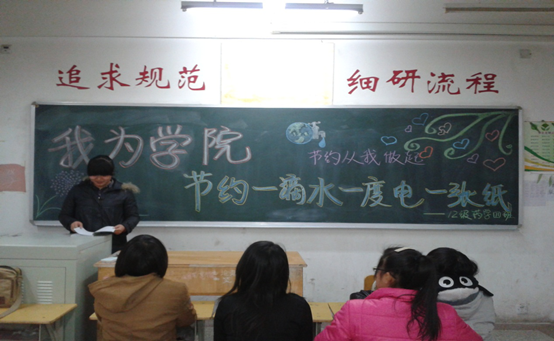 追求规范
细研流程
我为学院
节约从我做起
节约一滴水一度电一张纸